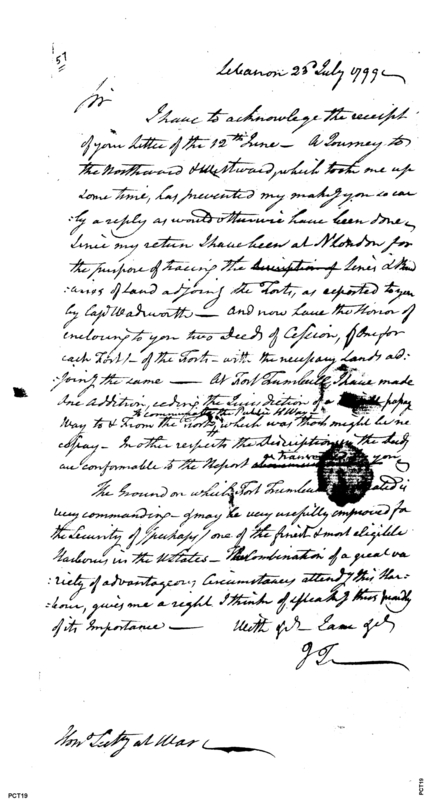 57
Lebanon 25th July 1799
Sir
I have to acknowlege the receipt
of your Letter of the 12th June — A Journey to
the Northward & Westward, which took me up
some time, has prevented my making you so ear
:ly a reply as would otherwise have been done
Since my return I have been at N London for
the purpose of tracing the Lines & Boun
:aries of Land adjoing the Forts, as reported to you
by Capt Wadsworth — And now have the Honor of
enclosing to you two Deeds of Cession, One for
each Fort — of the Forts — with the necessary Lands ad
:joing the same — At Fort Trumbull I have made
One addition, ceding the Jurisdiction of a passage
to communicate the Public H Way
Way to & From the Fort, which was thot might be ne
:cessary — In other respects the Descriptions in the Deeds
are conformable to the Report you
The Ground on which Fort Trumbull is
very commanding — & may be very usefully improved for
the Security of (perhaps) one of the finest & most eligible
Harbours in the U States — The Combination of a great va
:riety of advantageous Circumstances attendg this Har
:bour, gives me a right I think of speakg thus
of its Importance — With &c I am &c
J T
Honl Secty at War
PCT19
PCT19